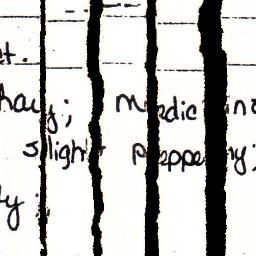 hay; medicin
slight peppery;
ty;